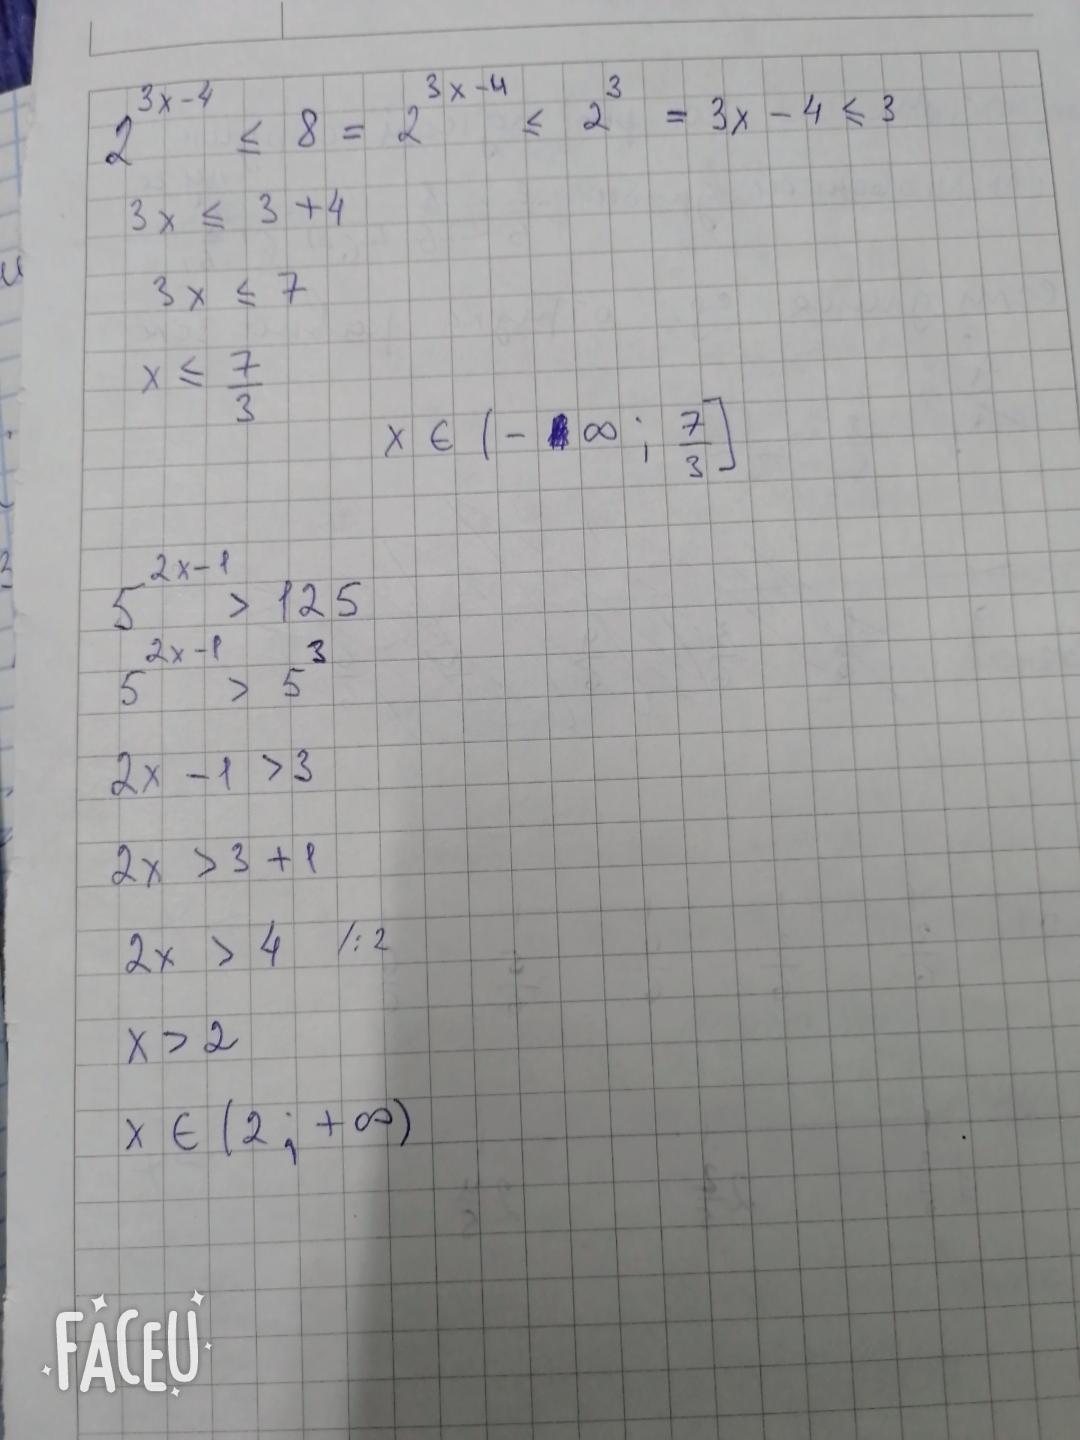 2^{3x-4} ≤ 8 = 2^{3x-4} ≤ 2^3 = 3x - 4 ≤ 3
3x ≤ 3 + 4
3x ≤ 7
x ≤ 7/3
x ∈ (-∞; 7/3]
5^{2x-1} > 125
5^{2x-1} > 5^3
2x - 1 > 3
2x > 3 + 1
2x > 4 /:2
x > 2
x ∈ (2; +∞)
FACEU